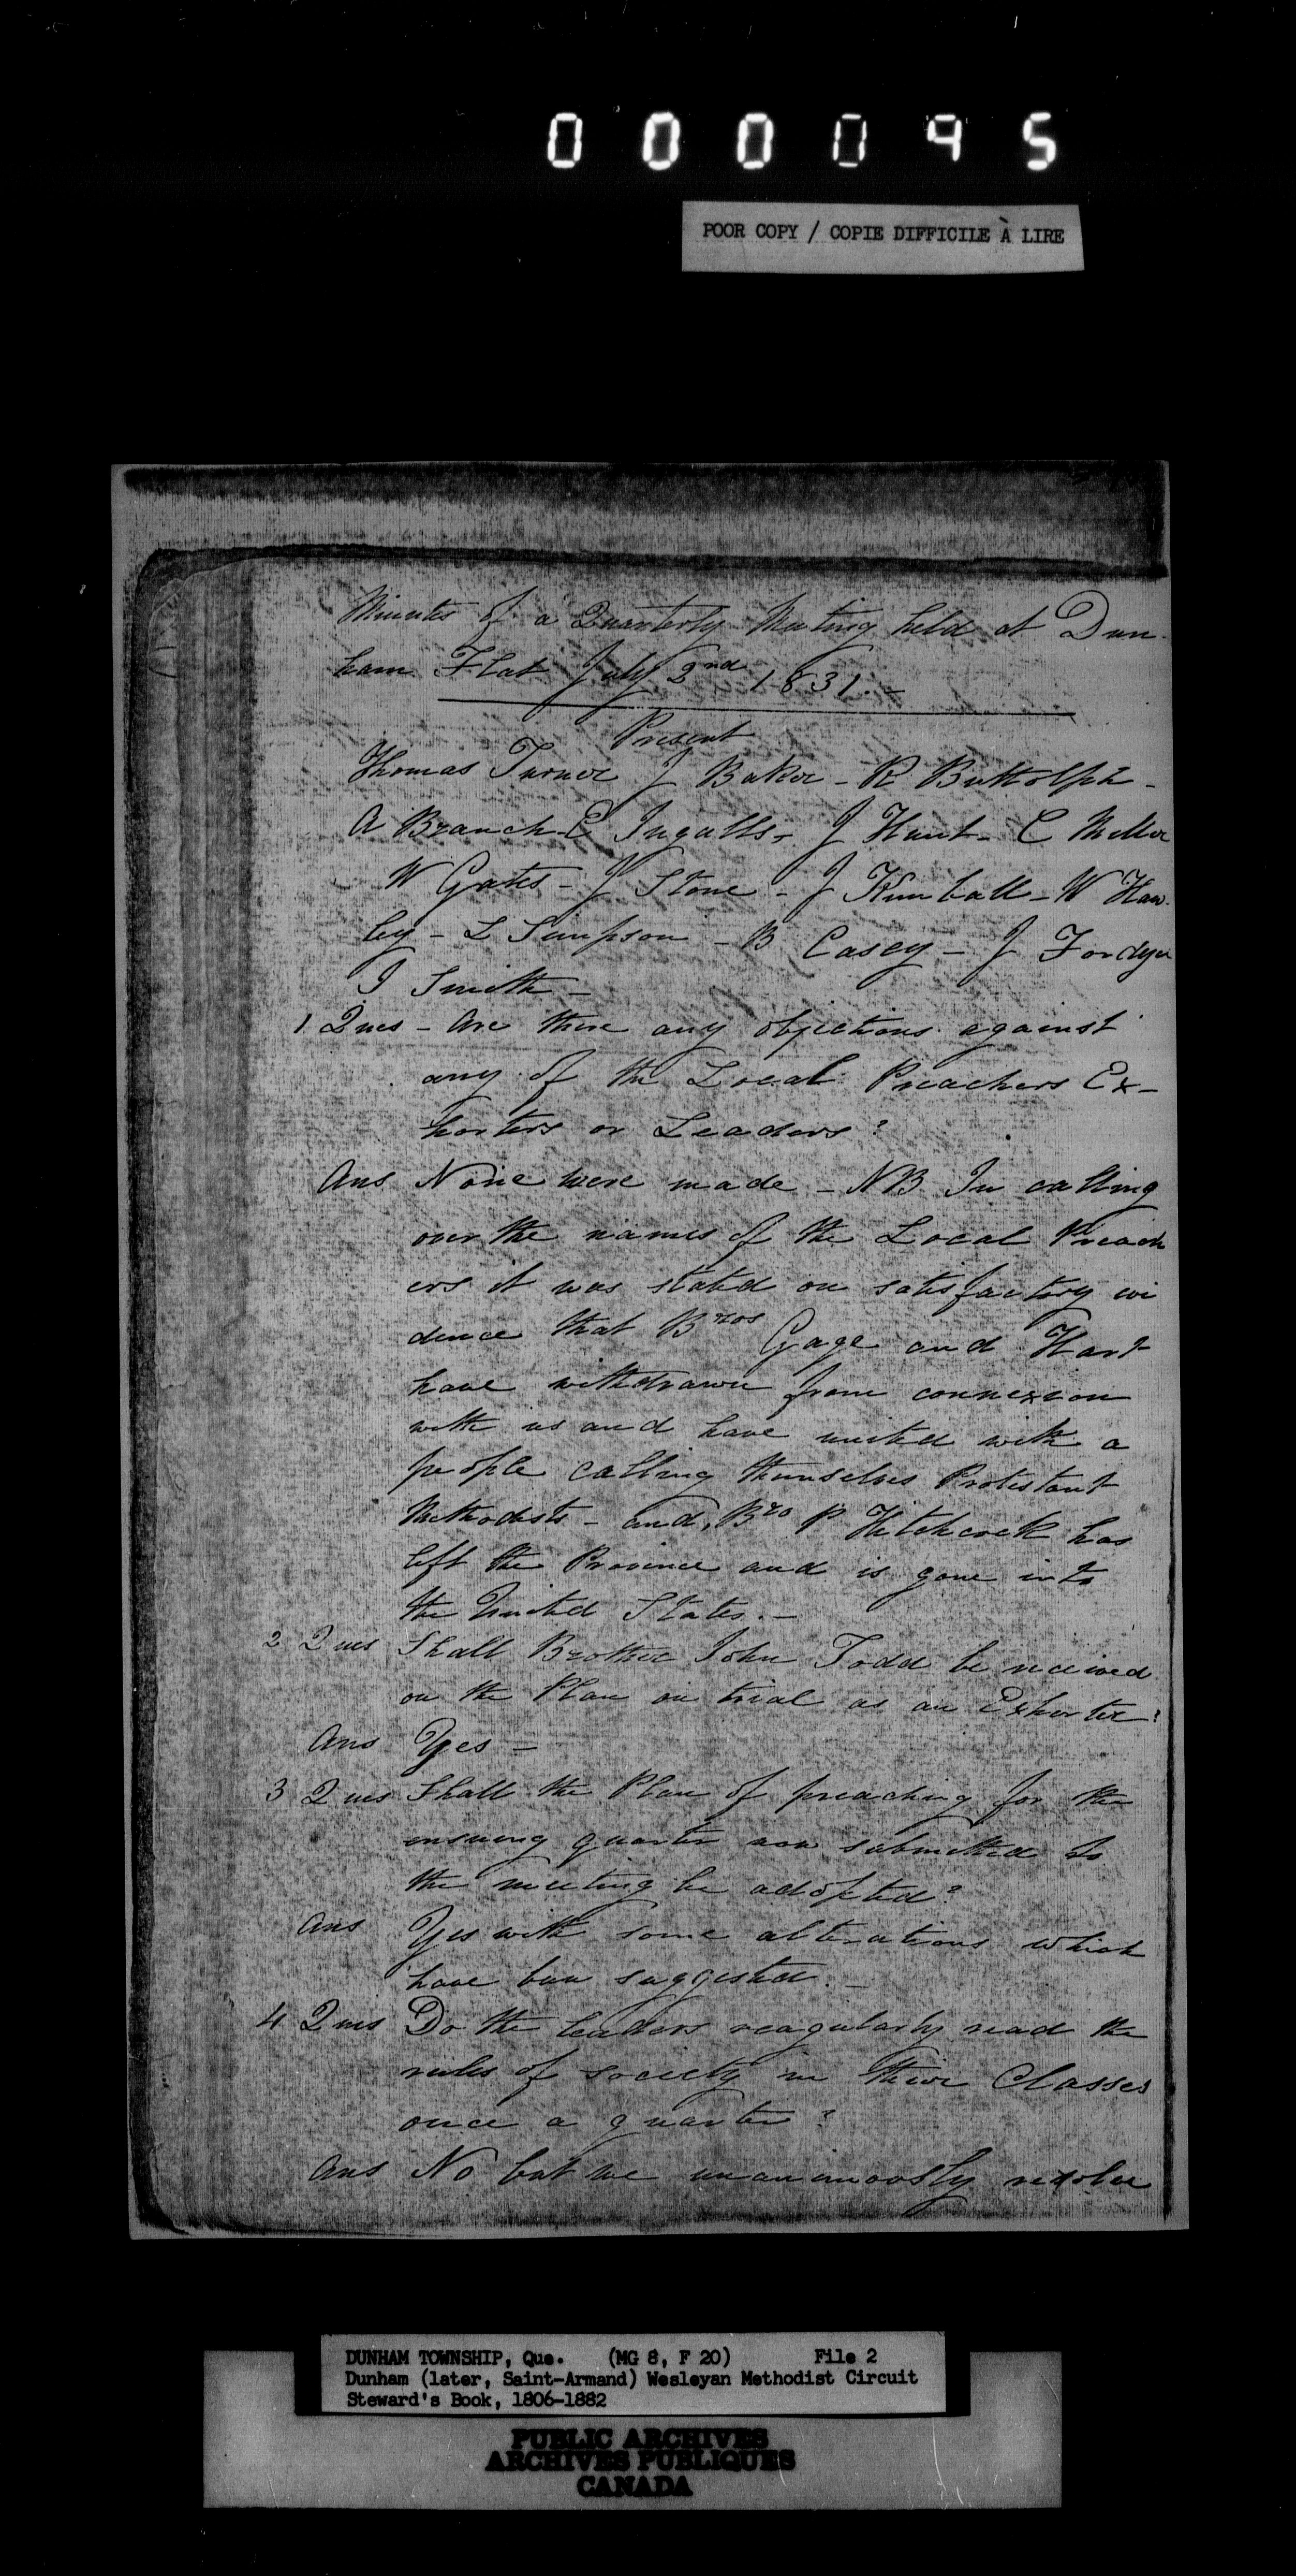 000095
POOR COPY / COPIE DIFFICILE À LIRE
Minutes of a Quarterly Meeting held at Dun-
ham Flat July 2nd 1831. -
Present
Thomas Turner J Baker - R Buttolph -
A Branch - E Ingalls - J Hunt - C Miller
W Gates - J Stone - J Kimball - W Haw-
ley - L Simpson - B Casey - J Fordyce
I Smith -
1 Ques - Are there any objections against
any of the Local Preachers Ex-
horters or Leaders?
Ans None were made - NB In calling
over the names of the Local Preach
ers it was stated on satisfactory evi
dence that Bros Gage and Hart
have withdrawn from connexion
with us and have united with a
people calling themselves Protestant
Methodists - and Bro P Hitchcock has
left the Province and is gone into
the United States. -
2 Ques Shall Brother John Todd be received
on the Plan on trial as an Exhorter?
Ans Yes -
3 Ques Shall the Plan of preaching for the
ensuing quarter now submitted to
the meeting be adopted?
Ans Yes with some alterations which
have been suggested. -
4 Ques Do the leaders reagularly read the
rules of society in their Classes
once a quarter?
Ans No but we unanimously resolve
DUNHAM TOWNSHIP, Que. (MG 8, F 20) File 2
Dunham (later, Saint-Armand) Wesleyan Methodist Circuit
Steward's Book, 1806-1882
PUBLIC ARCHIVES
ARCHIVES PUBLIQUES
CANADA